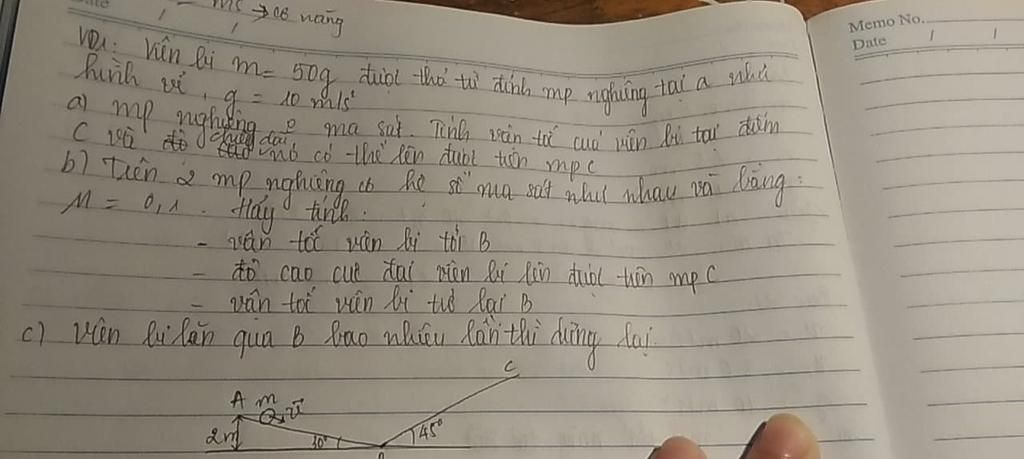 Memo No.
Date / /
MC → cơ năng
VD1: Viên bi m = 50g được thả từ đỉnh mp nghiêng tại a như
hình vẽ, g = 10 m/s²
a) mp nghiêng 0 ma sát. Tính vận tốc của viên bi tại điểm
C và chiều dài nó có thể lên được trên mp C
b) Trên 2 mp nghiêng có hệ số ma sát như nhau và bằng:
M = 0,1. Hãy tính:
- vận tốc viên bi tới B
- độ cao cực đại viên bi lên được trên mp C
- vận tốc viên bi trở lại B
c) Viên bi lăn qua B bao nhiêu lần thì dừng lại.
C
A m
v
2m 30° 45°